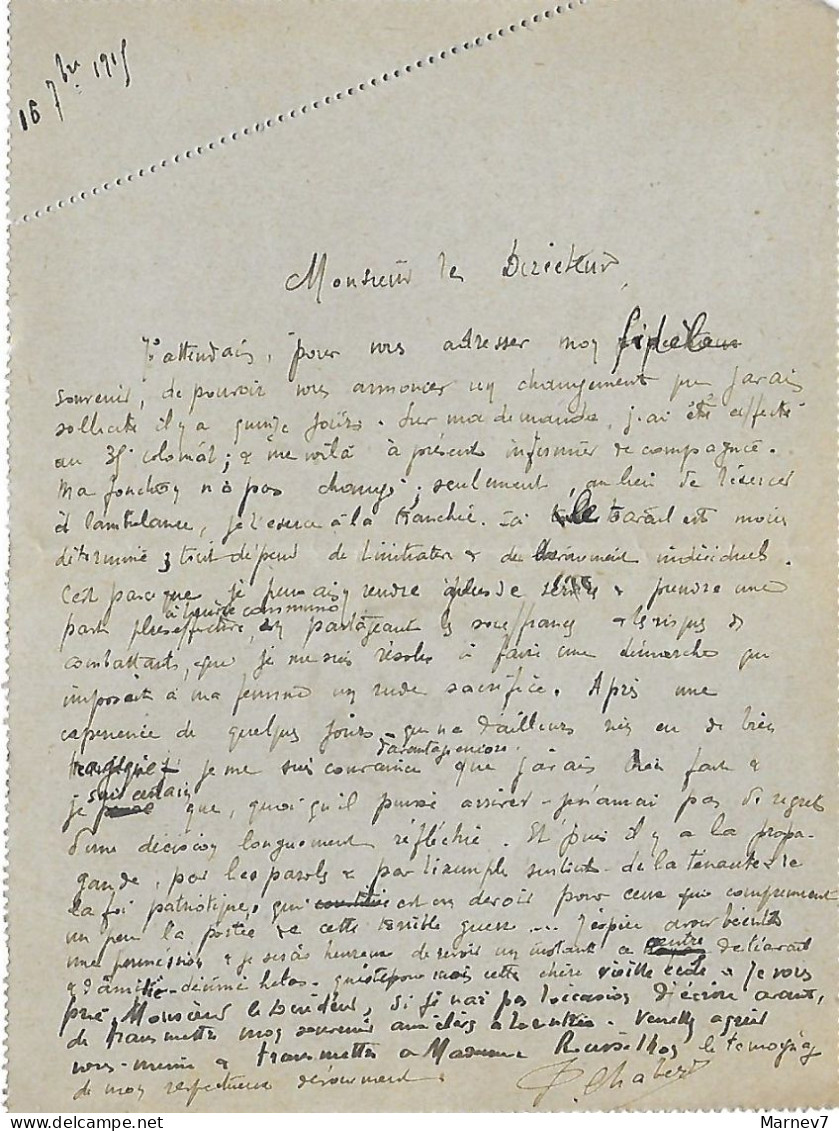 16 7bre 1915
Monsieur le Directeur,
J'attendais, pour vous adresser mon fidèle
souvenir, de pouvoir vous annoncer un changement que j'avais
sollicité il y a quinze jours. Sur ma demande, j'ai été affecté
au 3 colonial; & me voilà à présent infirmier de compagnie.
Ma fonction n'a pas changé; seulement, au lieu de l'exercer
à l'ambulance, je l'exerce à la tranchée. le travail est moins
déterminé; tout dépend de l'initiative & du dévouement individuels.
C'est parce que je pouvais y rendre plus de services & prendre une
part plus effective à l'œuvre commune, en partageant les souffrances & les risques des
combattants, que je me suis résolu à faire une démarche qui
imposait à ma femme un rude sacrifice. Après une
expérience de quelques jours - qui n'a d'ailleurs rien eu de bien
tragique - je me suis convaincu davantage encore que j'avais bien fait &
je suis certain que, quoi qu'il puisse arriver - je n'aurai pas de regret
d'une décision longuement réfléchie. Et puis il y a la propa-
gande, par les paroles & par l'exemple de la ténacité & de
la foi patriotique, qui est un devoir pour ceux qui comprennent
un peu la portée de cette terrible guerre... J'espère avoir bientôt
une permission & je serais heureux de revoir un instant ce centre de travail
& d'amitié - décimé hélas - qu'est pour moi cette chère vieille école. Je vous
prie, Monsieur le Directeur, si je n'ai pas l'occasion d'écrire avant,
de transmettre mon souvenir aux élèves à la rentrée. Veuillez agréer
vous-même & transmettre à Madame le témoignage
de mon respectueux dévouement.
P. Chabert
Marnev7